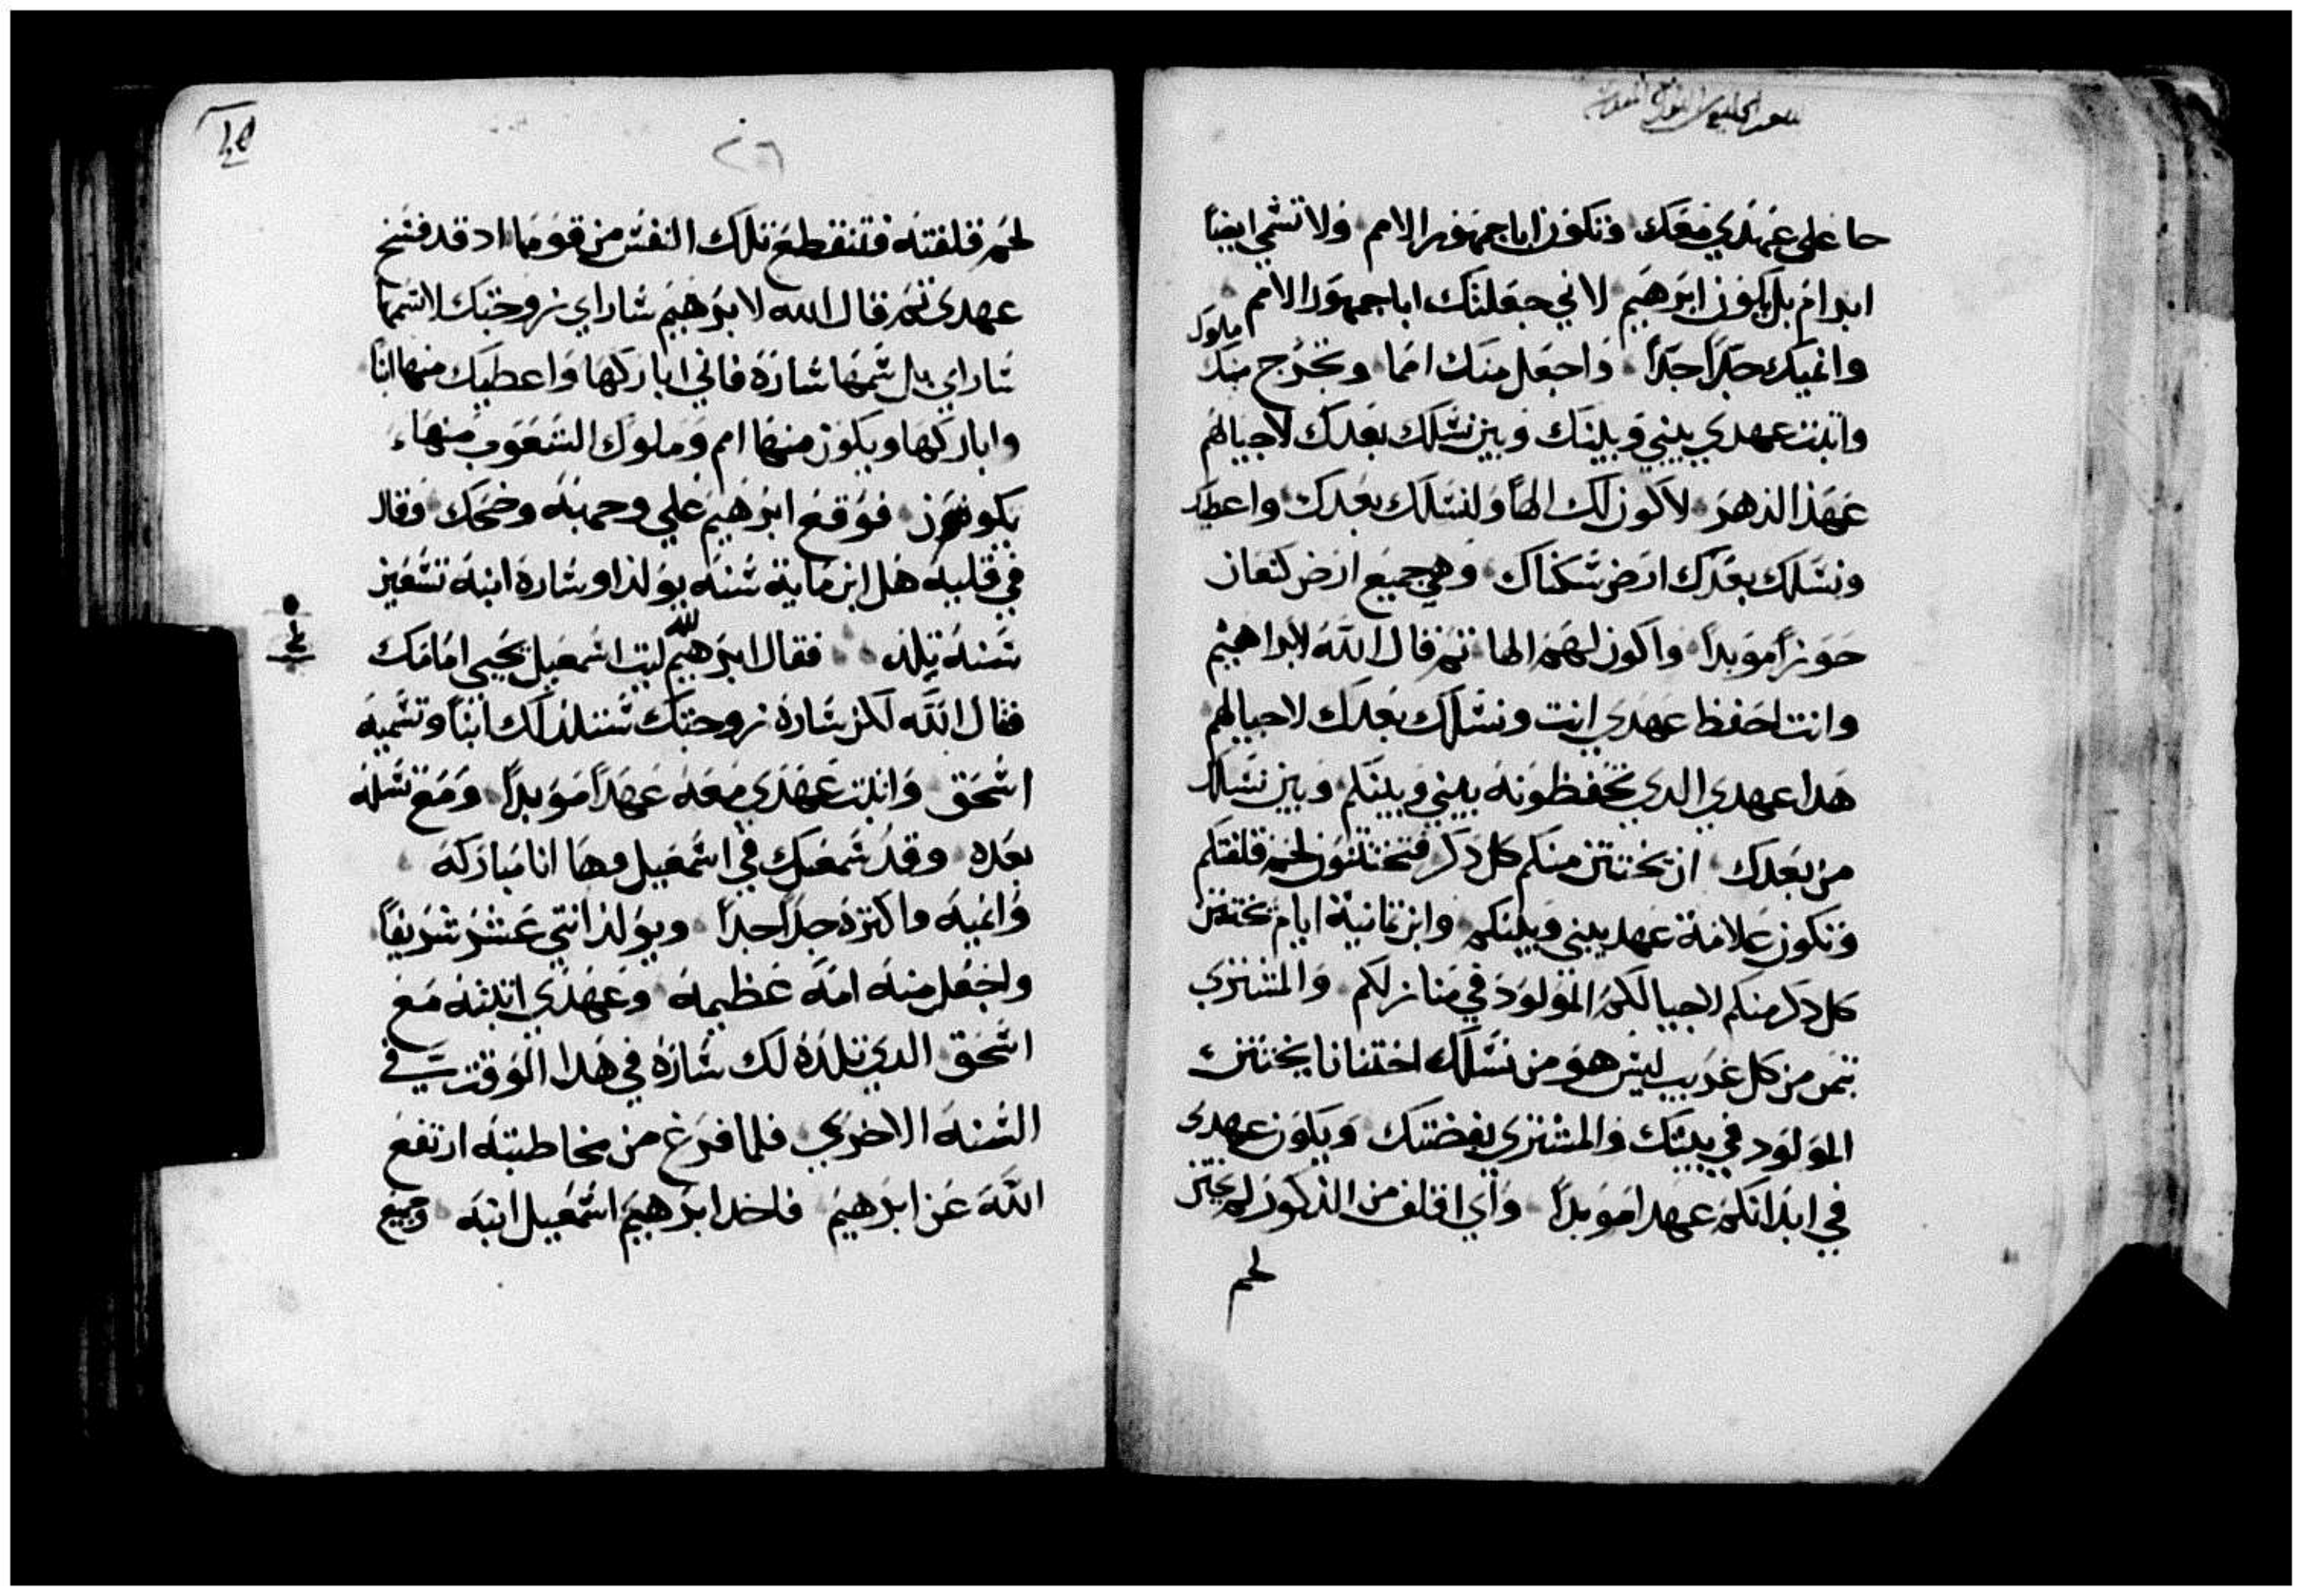 حا على عهدي معك وتكون ابا جمهور الامم ولا تسمي ايضًا
ابرام بل يكون ابرهيم لاني جعلتك ابا جمهور الامم
وانميك جدًا جدًا واجعل منك امما وتخرج منك ملوك
واتبت عهدي بيني وبينك وبين نسلك بعدك لاجيالهم
عهد الدهر لاكون لك الهًا ولنسلك بعدك واعطيك
ونسلك بعدك ارض سكناك وهي جميع ارض كنعان
حوزًا موبدًا واكون لهم الها تم قال الله لابراهيم
وانت احفظ عهدي انت ونسلك بعدك لاجيالهم
هدا عهدي الدي تحفظونه بيني وبينكم وبين نسلك
من بعدك ان يختتن منكم كل دكر فتختتنون لحم قلفتكم
وتكون علامة عهد بيني وبينكم وابن تمانية ايام يختتن
كل دكر منكم لاجيالكم المولود في منازلكم والمشتري
بتمن من كل غريب ليس هو من نسلك اختتانا يختتن
المولود في بيتك والمشتري بفضتك ويكون عهدي
في ابدانكم عهدا موبدًا واي اقلف من الدكور لم يختتن
لحم
٢٦
لحم قلفته فتنقطع تلك النفس من قومها اد قد فسخ
عهدي تم قال الله لابرهيم ساراي زوجتك لا تسمها
ساراي بل سمها سارة فاني اباركها واعطيك منها ابنًا
واباركها ويكون منها امم وملوك الشعوب منها
يكونون فوقع ابرهيم علي وجهه وضحك وقال
في قلبه هل ابن ماية سنه يولد او ساره ابنة تسعين
سنه تلد فقال ابرهيم لله ليت اسمعيل يحيي امامك
فقال الله لكن ساره زوجتك ستلد لك ابنًا وتسميه
اسحق واتبت عهدي معه عهدًا موبدًا ومع نسله
بعده وقد سمعتك في اسمعيل وها انا مباركه
وانميه واكتره جدًا جدًا ويولد اتني عشر شريفًا
واجعل منه امه عظيمه وعهدي اتبته مع
اسحق الدي تلده لك ساره في هدا الوقت في
السنه الاخري فلما فرغ من مخاطبته ارتفع
الله عن ابرهيم فاخد ابرهيم اسمعيل ابنه وجميع